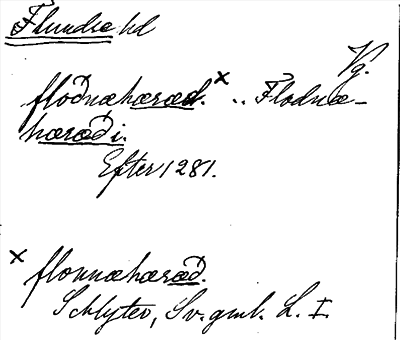 Flundre hd
Vg.
floðnæhæræd.× .. Flodnæ-
hæræd i.
Efter 1281.
× flonnæhæræd.
Schlyter, Sv. gml. L. I.